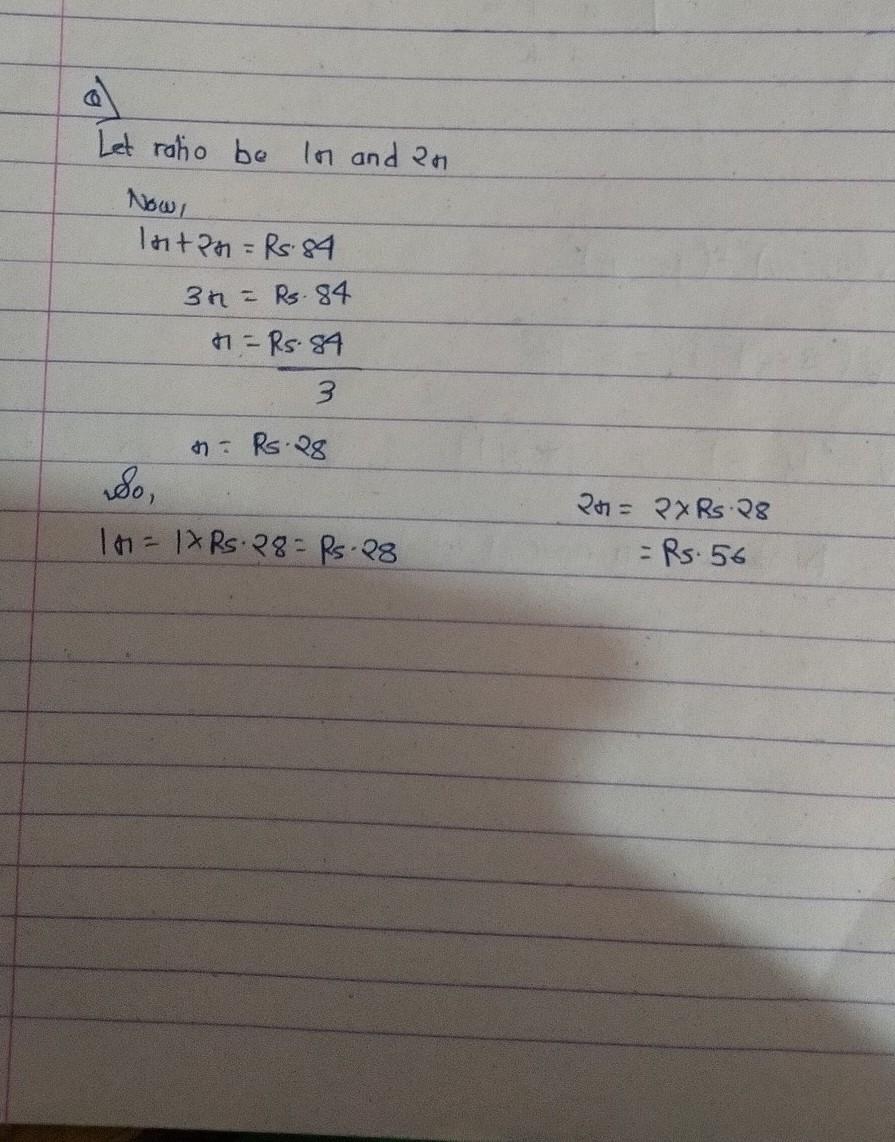 a)
Let ratio be 1x and 2x
Now,
1x + 2x = Rs. 84
3x = Rs. 84
x = Rs. 84
3
x = Rs. 28
So,
1x = 1 × Rs. 28 = Rs. 28
2x = 2 × Rs. 28
= Rs. 56